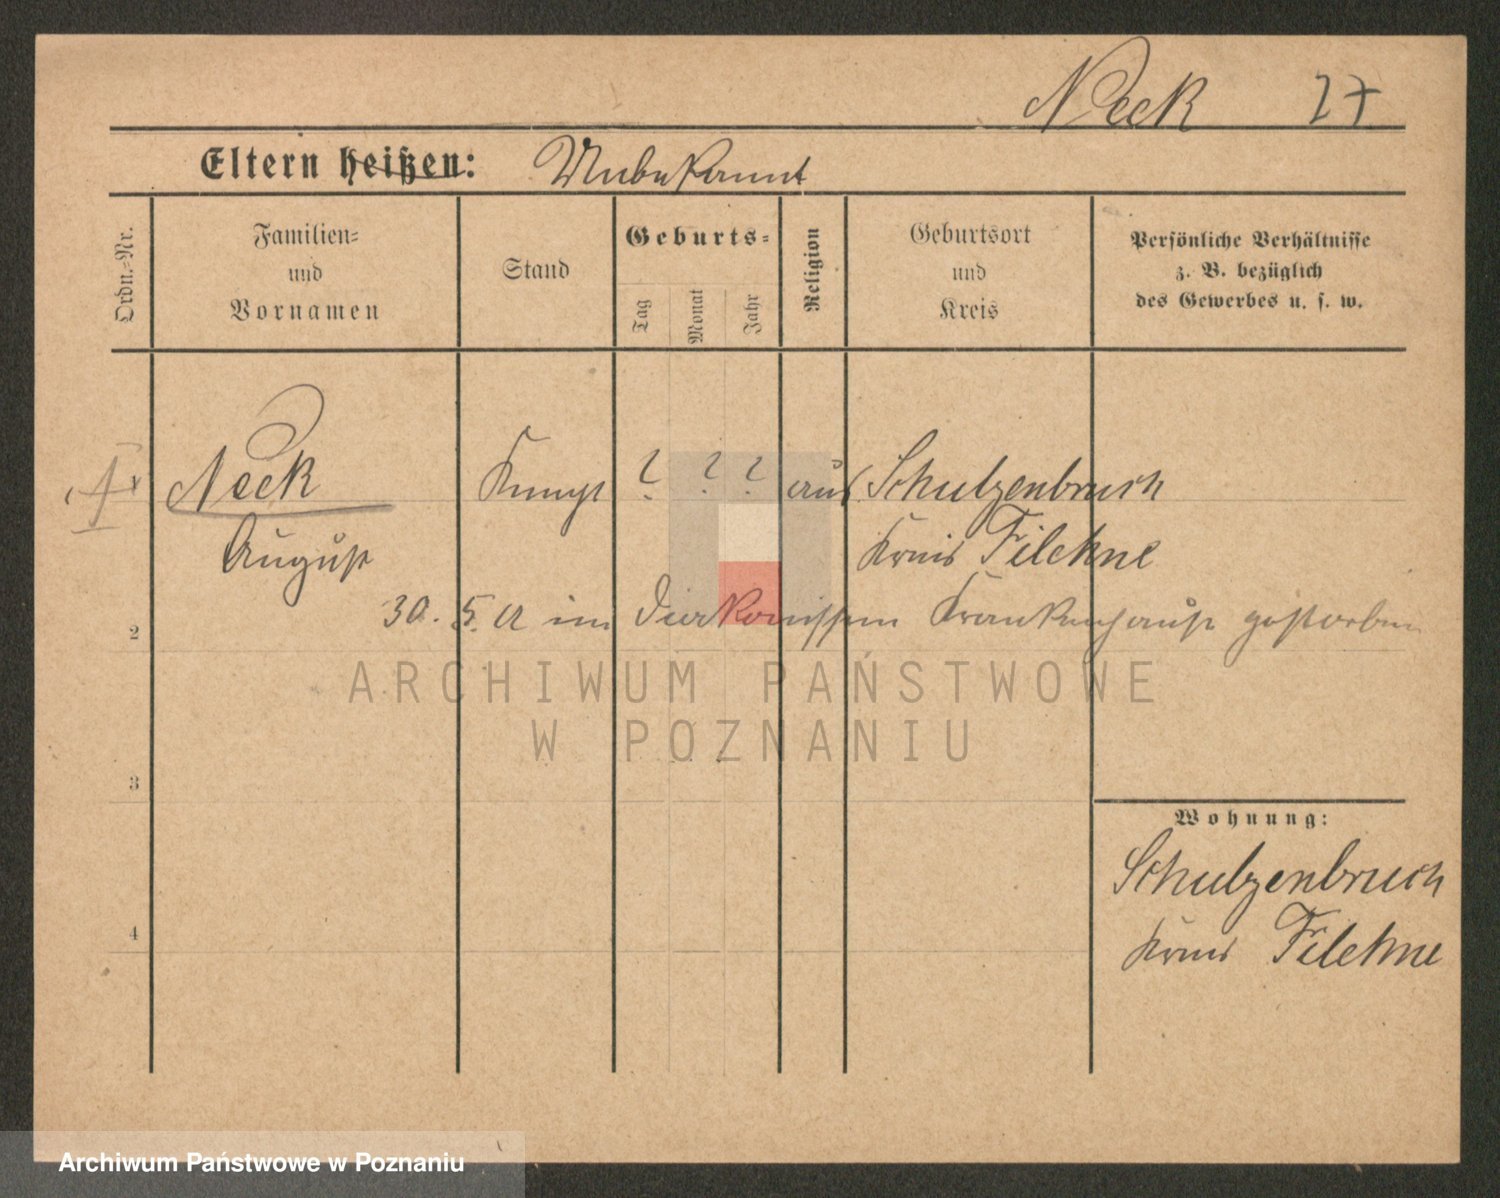 Neck 27
Eltern heißen: Unbekannt
Ordn.-Nr.
Familien-
und
Vornamen
Stand
Geburts-
Tag
Monat
Jahr
Religion
Geburtsort
und
Kreis
Persönliche Verhältnisse
z. B. bezüglich
des Gewerbes u. s. w.
Neck Knecht ? ? ? aus Schulzenbruch
August Kreis Filehne
30. 5. im Diakonissen Krankenhause gestorben
2
ARCHIWUM PAŃSTWOWE
W POZNANIU
3
Wohnung:
Schulzenbruch
4
Kreis Filehne
Archiwum Państwowe w Poznaniu